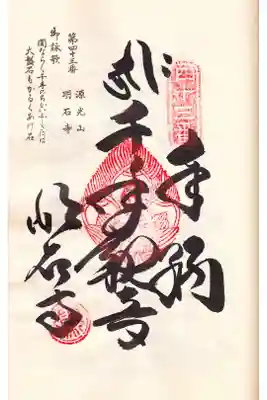 四十三番
奉納
千手観音
明石寺
第四十三番 源光山
明石寺
御詠歌
聞ならく千手のちかいふしぎには
大盤石もかろくあげ石